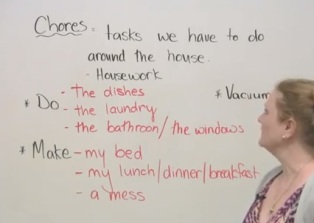 Chores = tasks we have to do
around the house.
- Housework
* Do - the dishes
- the laundry
- the bathroom/the windows
* Make - my bed
- my lunch/dinner/breakfast
- a mess
* Vacuum